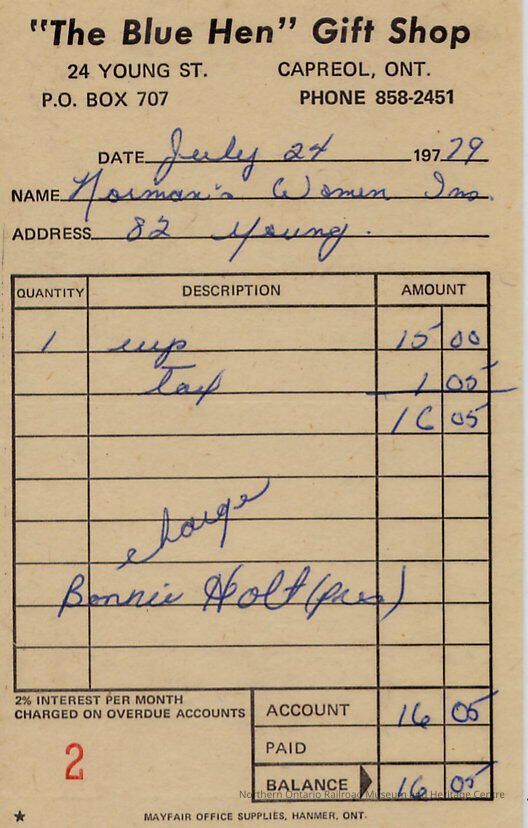 "The Blue Hen" Gift Shop
24 YOUNG ST. CAPREOL, ONT.
P.O. BOX 707 PHONE 858-2451
DATE July 24 197 79
NAME Norman's Women Ins.
ADDRESS 82 Young.
QUANTITY DESCRIPTION AMOUNT
1 cup 15 00
tax 1 05
16 05
charge
Bonnie Holt (pres)
2% INTEREST PER MONTH
CHARGED ON OVERDUE ACCOUNTS
ACCOUNT 16 05
PAID
2
BALANCE 16 05
Northern Ontario Railroad Museum and Heritage Centre
MAYFAIR OFFICE SUPPLIES, HANMER, ONT.